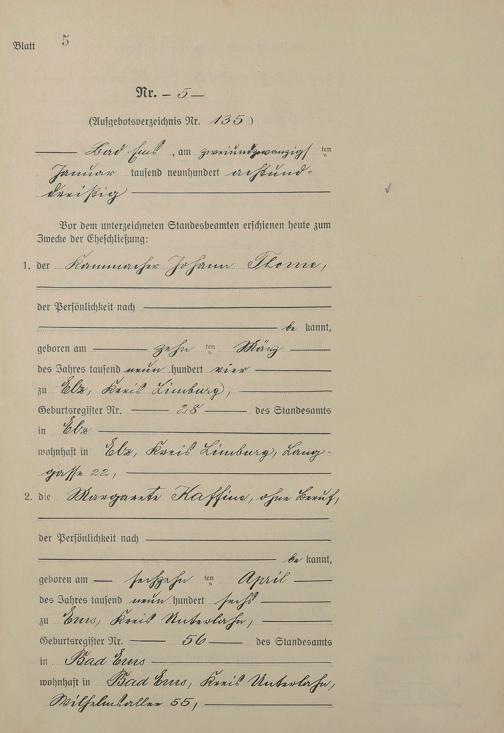 Blatt 5
Nr. — 5 —
(Aufgebotsverzeichnis Nr. 135)
Bad Ems, am zweiundzwanzigsten
Januar tausend neunhundert achtund-
dreißig
Vor dem unterzeichneten Standesbeamten erschienen heute zum
Zwecke der Eheschließung:
1. der Johann
der Persönlichkeit nach
be kannt,
geboren am zehn ten März
des Jahres tausend neun hundert vier
zu Elz, Kreis Limburg,
Geburtsregister Nr. 28 des Standesamts
in Elz
wohnhaft in Elz, Kreis Limburg, Lang-
gasse 22,
2. die Margarete Kaffine, ohne Beruf,
der Persönlichkeit nach
be kannt,
geboren am sechzehn ten April
des Jahres tausend neun hundert sechs
zu Ems, Kreis Unterlahn,
Geburtsregister Nr. 56 des Standesamts
in Bad Ems
wohnhaft in Bad Ems, Kreis Unterlahn,
Wilhelmsallee 55,